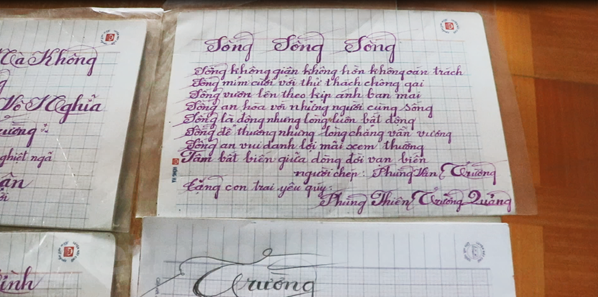 Sống Sống Sống
Sống không quản không hờn không oán trách
Sống mỉm cười với thử thách chông gai
Sống vươn lên theo kịp ánh ban mai
Sống an hòa với những người cùng sống
Sống là động nhưng lòng luôn bất động
Sống để thương nhưng lòng chẳng vấn vương
Sống an vui danh lợi mãi xem thường
Tâm bất biến giữa dòng đời vạn biến
người chép: Phùng Văn Trường
tặng con trai yêu quý:
Phùng Thiên Trường Quảng
Mã Không
Vô Nghĩa
nghiệt ngã
Trường